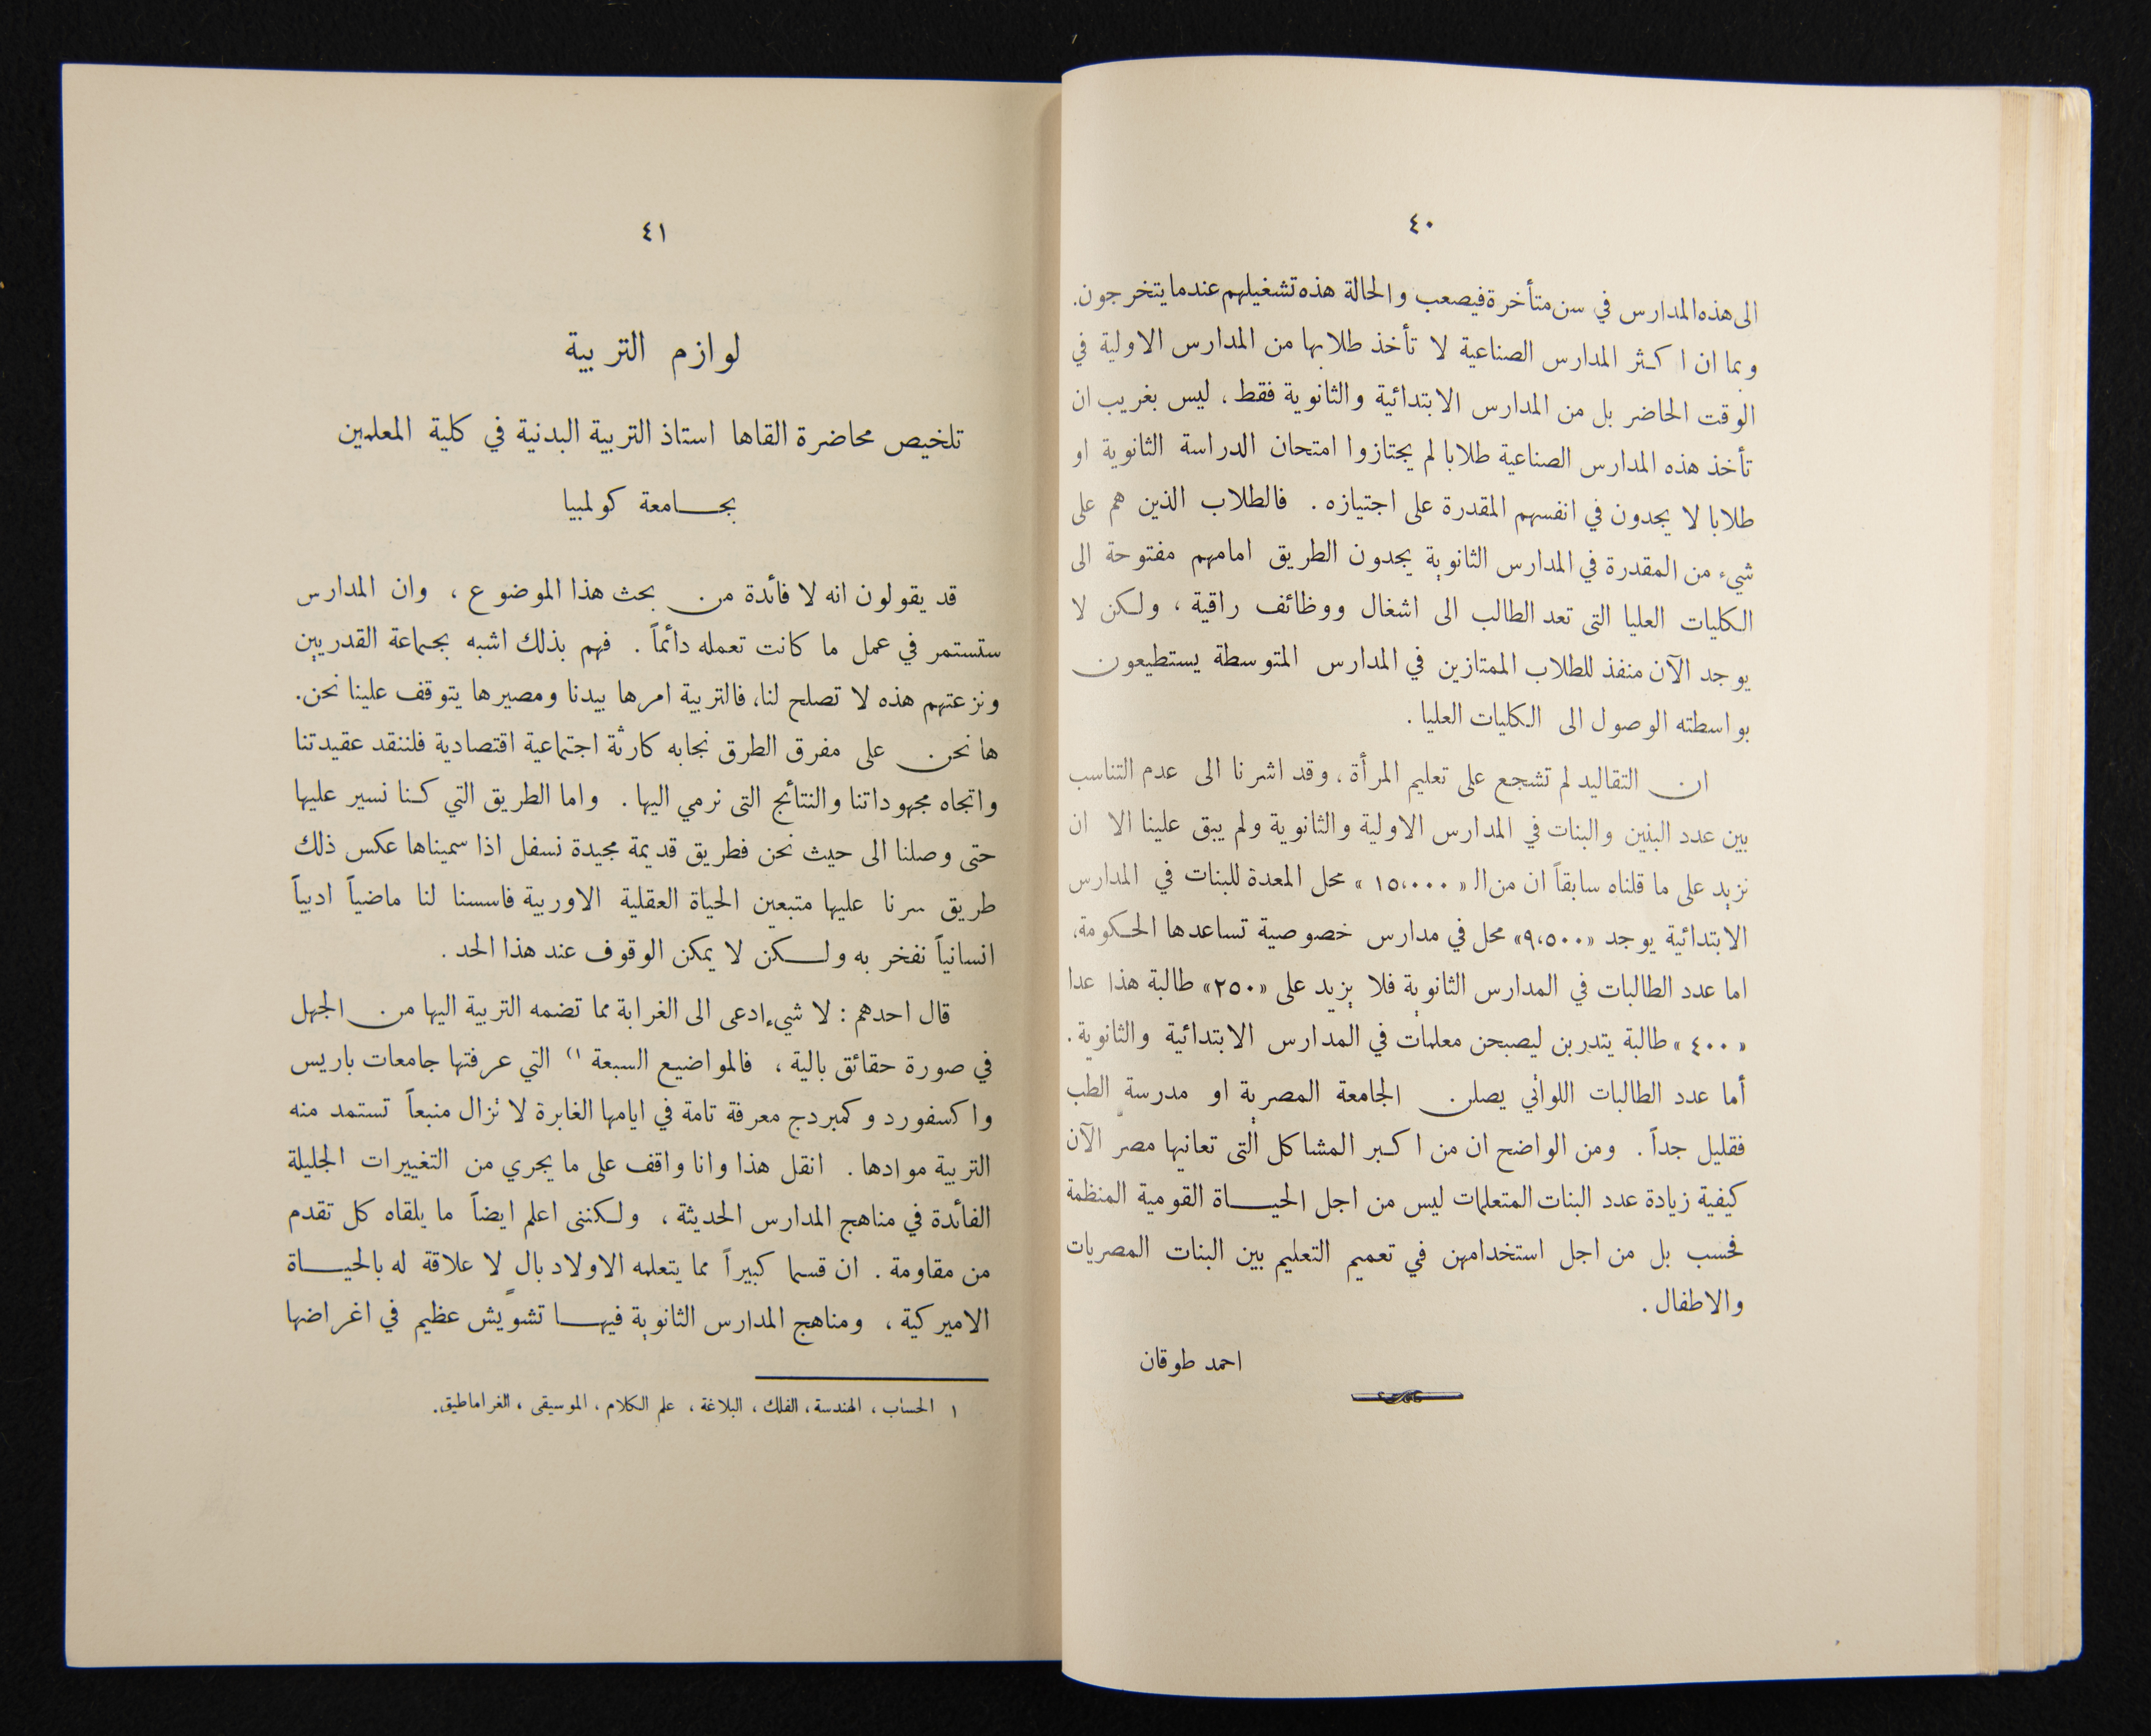 ٤٠
الى هذه المدارس في سن متأخرة فيصعب والحالة هذه تشغيلهم عندما يتخرجون.
وبما ان اكثر المدارس الصناعية لا تأخذ طلابها من المدارس الاولية في
الوقت الحاضر بل من المدارس الابتدائية والثانوية فقط، ليس بغريب ان
تأخذ هذه المدارس الصناعية طلابا لم يجتازوا امتحان الدراسة الثانوية او
طلابا لا يجدون في انفسهم المقدرة على اجتيازه . فالطلاب الذين هم على
شيء من المقدرة في المدارس الثانوية يجدون الطريق امامهم مفتوحة الى
الكليات العليا التى تعد الطالب الى اشغال ووظائف راقية ، ولكن لا
يوجد الآن منفذ للطلاب الممتازين في المدارس المتوسطة يستطيعون
بواسطته الوصول الى الكليات العليا .
ان التقاليد لم تشجع على تعليم المرأة ، وقد اشرنا الى عدم التناسب
بين عدد البنين والبنات في المدارس الاولية والثانوية ولم يبق علينا الا ان
نزيد على ما قلناه سابقاً ان من الـ « ١٥،٠٠٠ » محل المعدة للبنات في المدارس
الابتدائية يوجد «٩،٥٠٠» محل في مدارس خصوصية تساعدها الحكومة،
اما عدد الطالبات في المدارس الثانوية فلا يزيد على «٢٥٠» طالبة هذا عدا
« ٤٠٠ » طالبة يتدربن ليصبحن معلمات في المدارس الابتدائية والثانوية .
أما عدد الطالبات اللواتي يصلن الجامعة المصرية او مدرسة الطب
فقليل جداً . ومن الواضح ان من اكبر المشاكل التى تعانيها مصر الآن
كيفية زيادة عدد البنات المتعلمات ليس من اجل الحيــاة القومية المنظمة
فحسب بل من اجل استخدامهن في تعميم التعليم بين البنات المصريات
والاطفال .
احمد طوقان
٤١
لوازم التربية
تلخيص محاضرة القاها استاذ التربية البدنية في كلية المعلمين
بجــامعة كولمبيا
قد يقولون انه لا فائدة من بحث هذا الموضوع ، وان المدارس
ستستمر في عمل ما كانت تعمله دائماً . فهم بذلك اشبه بجماعة القدريين
ونزعتهم هذه لا تصلح لنا، فالتربية امرها بيدنا ومصيرها يتوقف علينا نحن.
ها نحن على مفرق الطرق نجابه كارثة اجتماعية اقتصادية فلننقد عقيدتنا
واتجاه مجهوداتنا والنتائج التى نرمي اليها . واما الطريق التي كنا نسير عليها
حتى وصلنا الى حيث نحن فطريق قديمة مجيدة نسفل اذا سميناها عكس ذلك
طريق سرنا عليها متبعين الحياة العقلية الاوربية فاسسنا لنا ماضياً ادبياً
انسانياً نفخر به ولــكن لا يمكن الوقوف عند هذا الحد .
قال احدهم : لا شيء ادعى الى الغرابة مما تضمه التربية اليها من الجهل
في صورة حقائق بالية ، فالمواضيع السبعة ١) التي عرفتها جامعات باريس
واكسفورد وكمبردج معرفة تامة في ايامها الغابرة لا تزال منبعاً تستمد منه
التربية موادها . انقل هذا وانا واقف على ما يجري من التغييرات الجليلة
الفائدة في مناهج المدارس الحديثة ، ولكننى اعلم ايضاً ما يلقاه كل تقدم
من مقاومة . ان قسما كبيراً مما يتعلمه الاولاد بالٍ لا علاقة له بالحيــاة
الاميركية ، ومناهج المدارس الثانوية فيهــا تشويش عظيم في اغراضها
١ الحساب ، الهندسة ، الفلك ، البلاغة ، علم الكلام ، الموسيقى ، الغراماطيق.